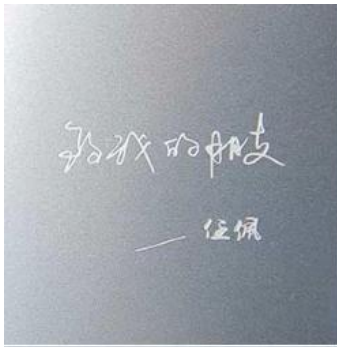 给我的朋友
——任佩